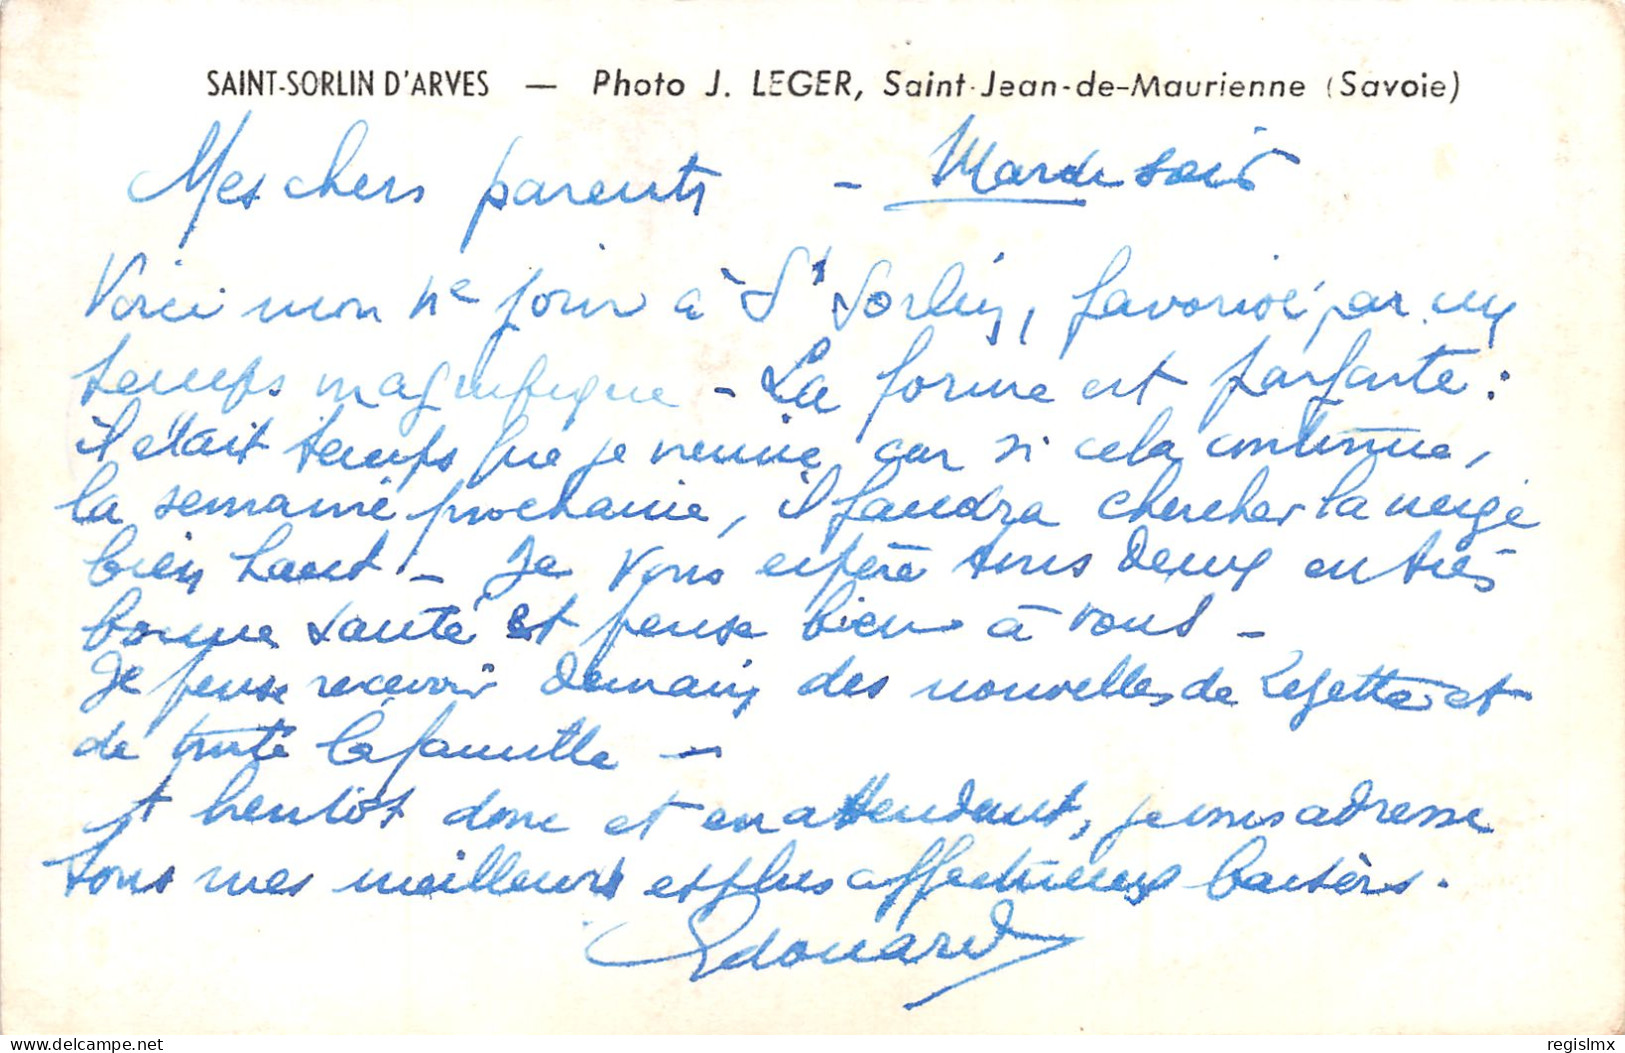 SAINT-SORLIN D'ARVES — Photo J. LEGER, Saint-Jean-de-Maurienne (Savoie)
Mes chers parents - Mardi soir
Voici mon jour à St Sorlin, favorisé par un
temps magnifique - La forme est parfaite :
il était temps que je vienne car si cela continue,
la semaine prochaine, il faudra chercher la neige
bien haut - Je vous espère tous deux en très
bonne santé et pense bien à vous -
Je pense recevoir demain des nouvelles de et
de toute la famille -
A bientôt donc et en attendant, je vous adresse
tous mes meilleurs et plus affectueux baisers.
Edouard
delcampe.net
regislmx